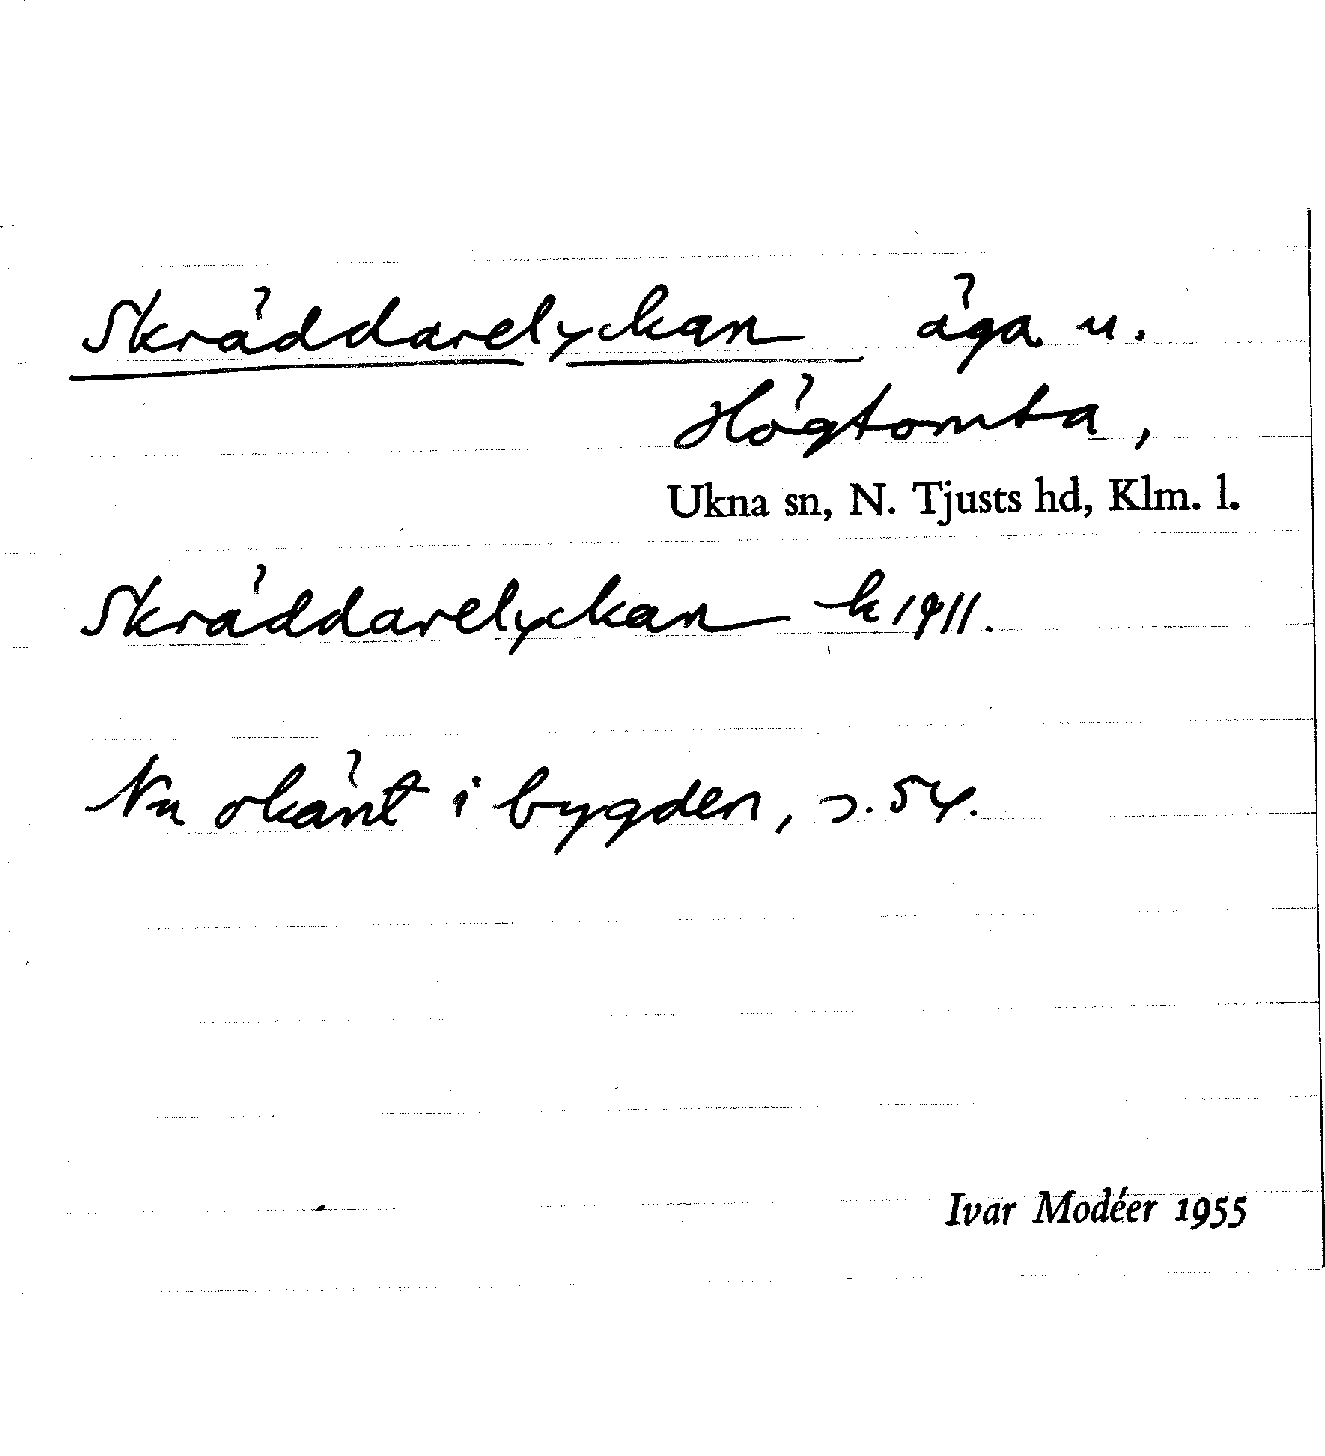 Skräddarelyckan äga u.
Högtomta,
Ukna sn, N. Tjusts hd, Klm. l.
Skräddarelyckan k 1911.
Nu okänt i bygden, s. 54.
Ivar Modéer 1955